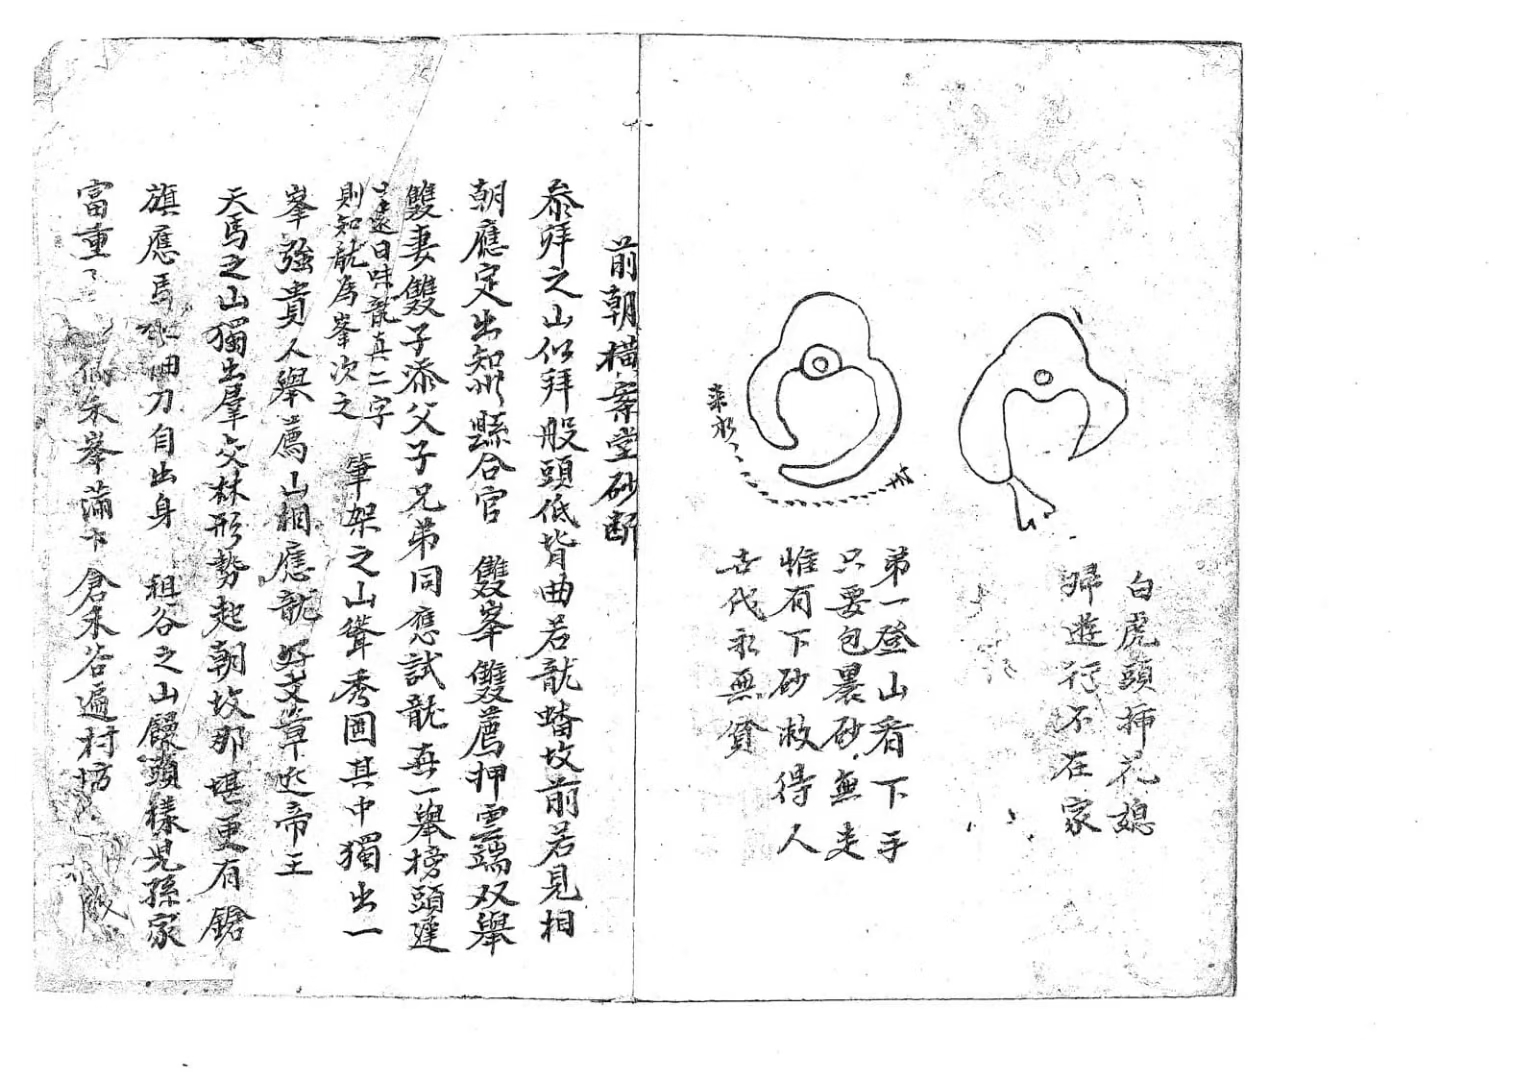 白虎頭揷花媳
歸遊行不在家
第一登山看下手
只要包裹砂無走
惟有下砂救得人
古代永無貧
來水
前朝橫案堂砂断
叅拜之山似拜般頭低背曲若龍蟠坟前若見相
朝應定出知州縣合官 雙峯雙薦押雲端双舉
雙妻雙子添父子兄弟同應試龍無一舉榜頭違
遠日味龍真二字
則知龍為峯次之 筆架之山聳秀圓其中獨出一
峯強貴人舉薦山相應龍好文章近帝王
天馬之山獨出羣交林形勢起朝坟那堪更有鎗
旗應馬 刀自出身 租谷之山饅頭樣児孫家
富重 朱峯滿 倉禾谷遍村坊